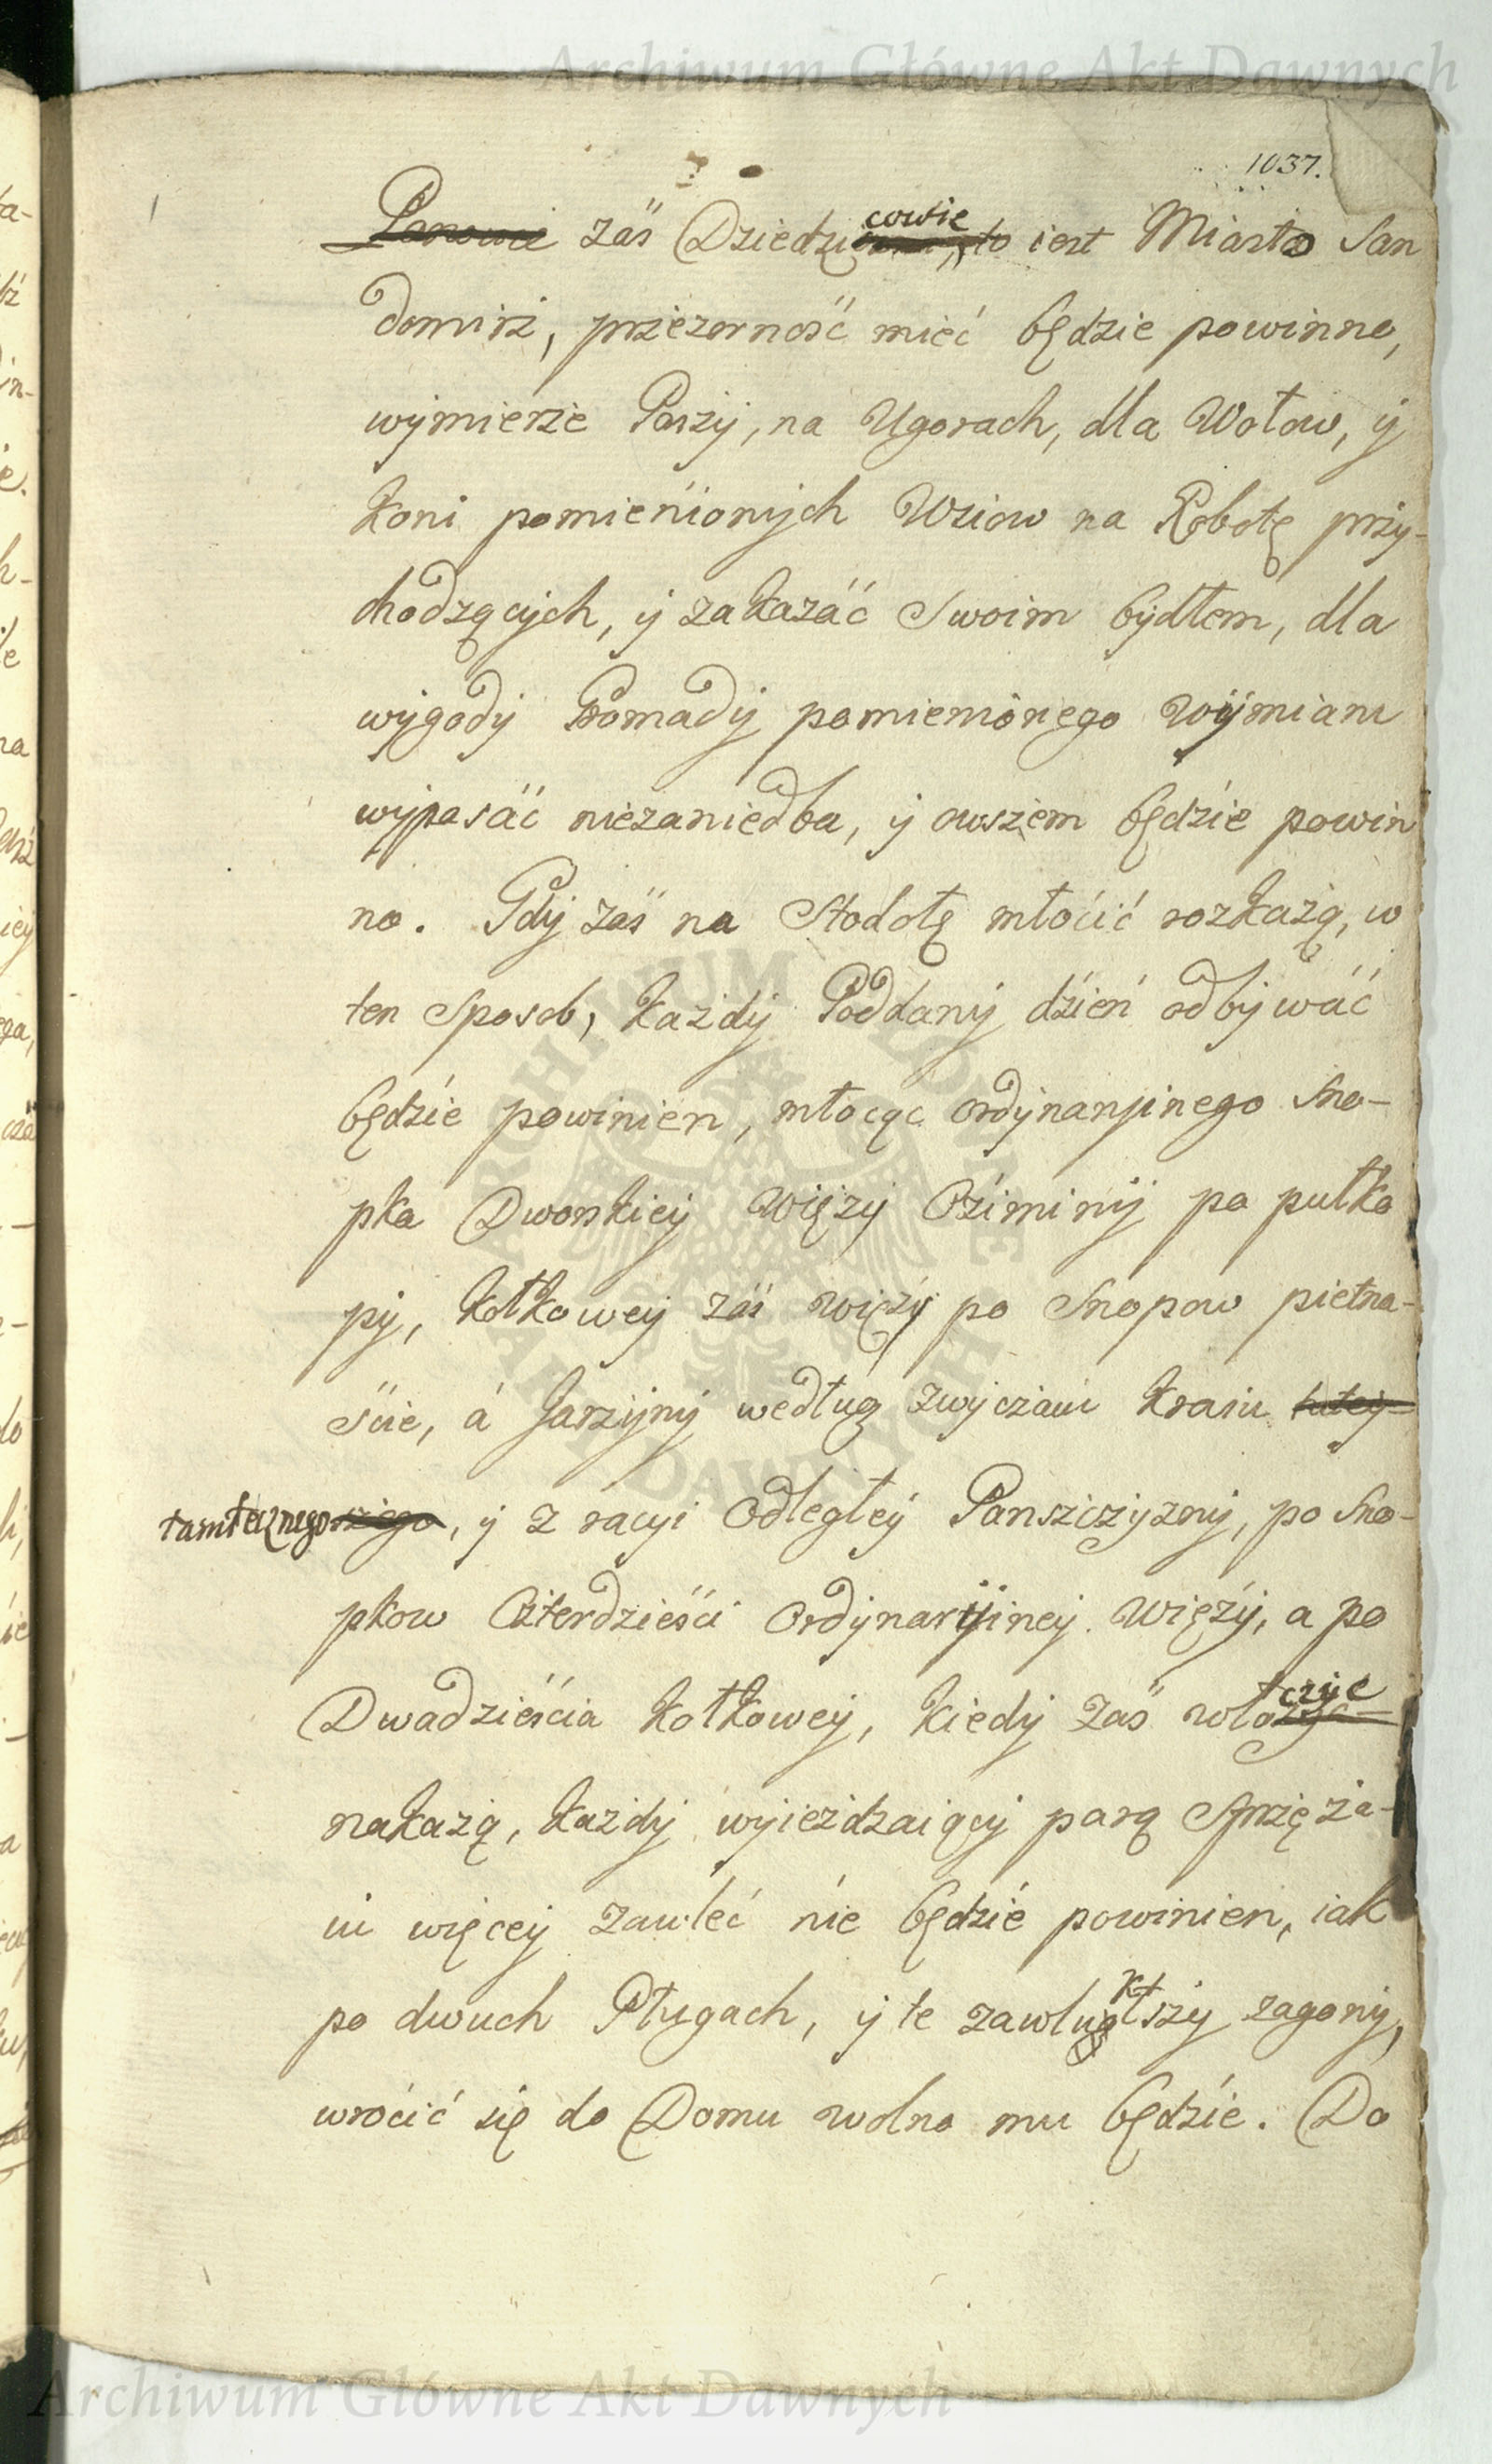 Archiwum Główne Akt Dawnych
1037.
Panowie zaś Dziedzicowie, to iest Miasto San
domirz, przezorność mieć będzie powinno,
wymierze Paszy, na Ugorach, dla Wołow, y
koni pomienionych Wsiow na Robotę przy-
chodzących, y zakazać Swoim bydłem, dla
wygody Gromady pomienionego Wymiaru
wypasać niezaniedba, y owszem będzie powin
no. Gdy zaś na Stodołę młocić rozkażą, w
ten Sposob, każdy Poddany dzień odbywać
będzie powinien, młocąc ordynaryinego Sno-
pka Dworskiey Więzy Oziminy po pułko
py, kołkowey zaś więzy po Snopow pietna-
ście, á Jarzyny według zwyczaiu Kraiu tutey-
tamtecznego szego, y z racyi Odległey Panszczyzny, po Sno-
pkow Czterdzieści Ordynaryiney Więzy, a po
Dwadzieścia kołkowey, kiedy zaś włoczyć
nakażą, każdy wyieżdzaiący parą Sprzęża-
iu więcey zawlec nie będzie powinien, iak
po dwuch Pługach, y te zawlukłszy zagony,
wrócić się do Domu wolno mu będzie. Do
ARCHIWUM GŁÓWNE AKT DAWNYCH
Archiwum Główne Akt Dawnych